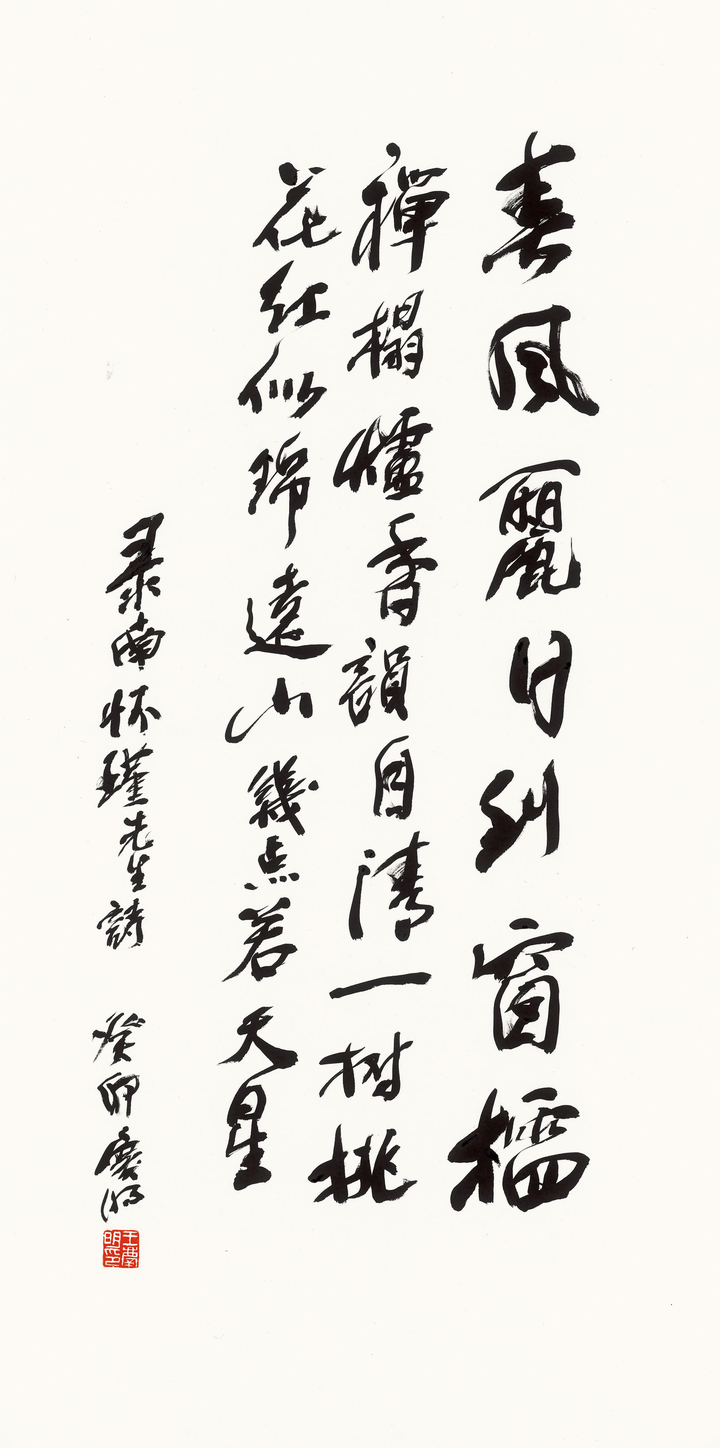 春風麗日到窗櫺
禪榻爐香韻自清一树桃
花紅似錦遠山幾点若天星
录南怀瑾先生詩 癸卯慶明
王慶明印